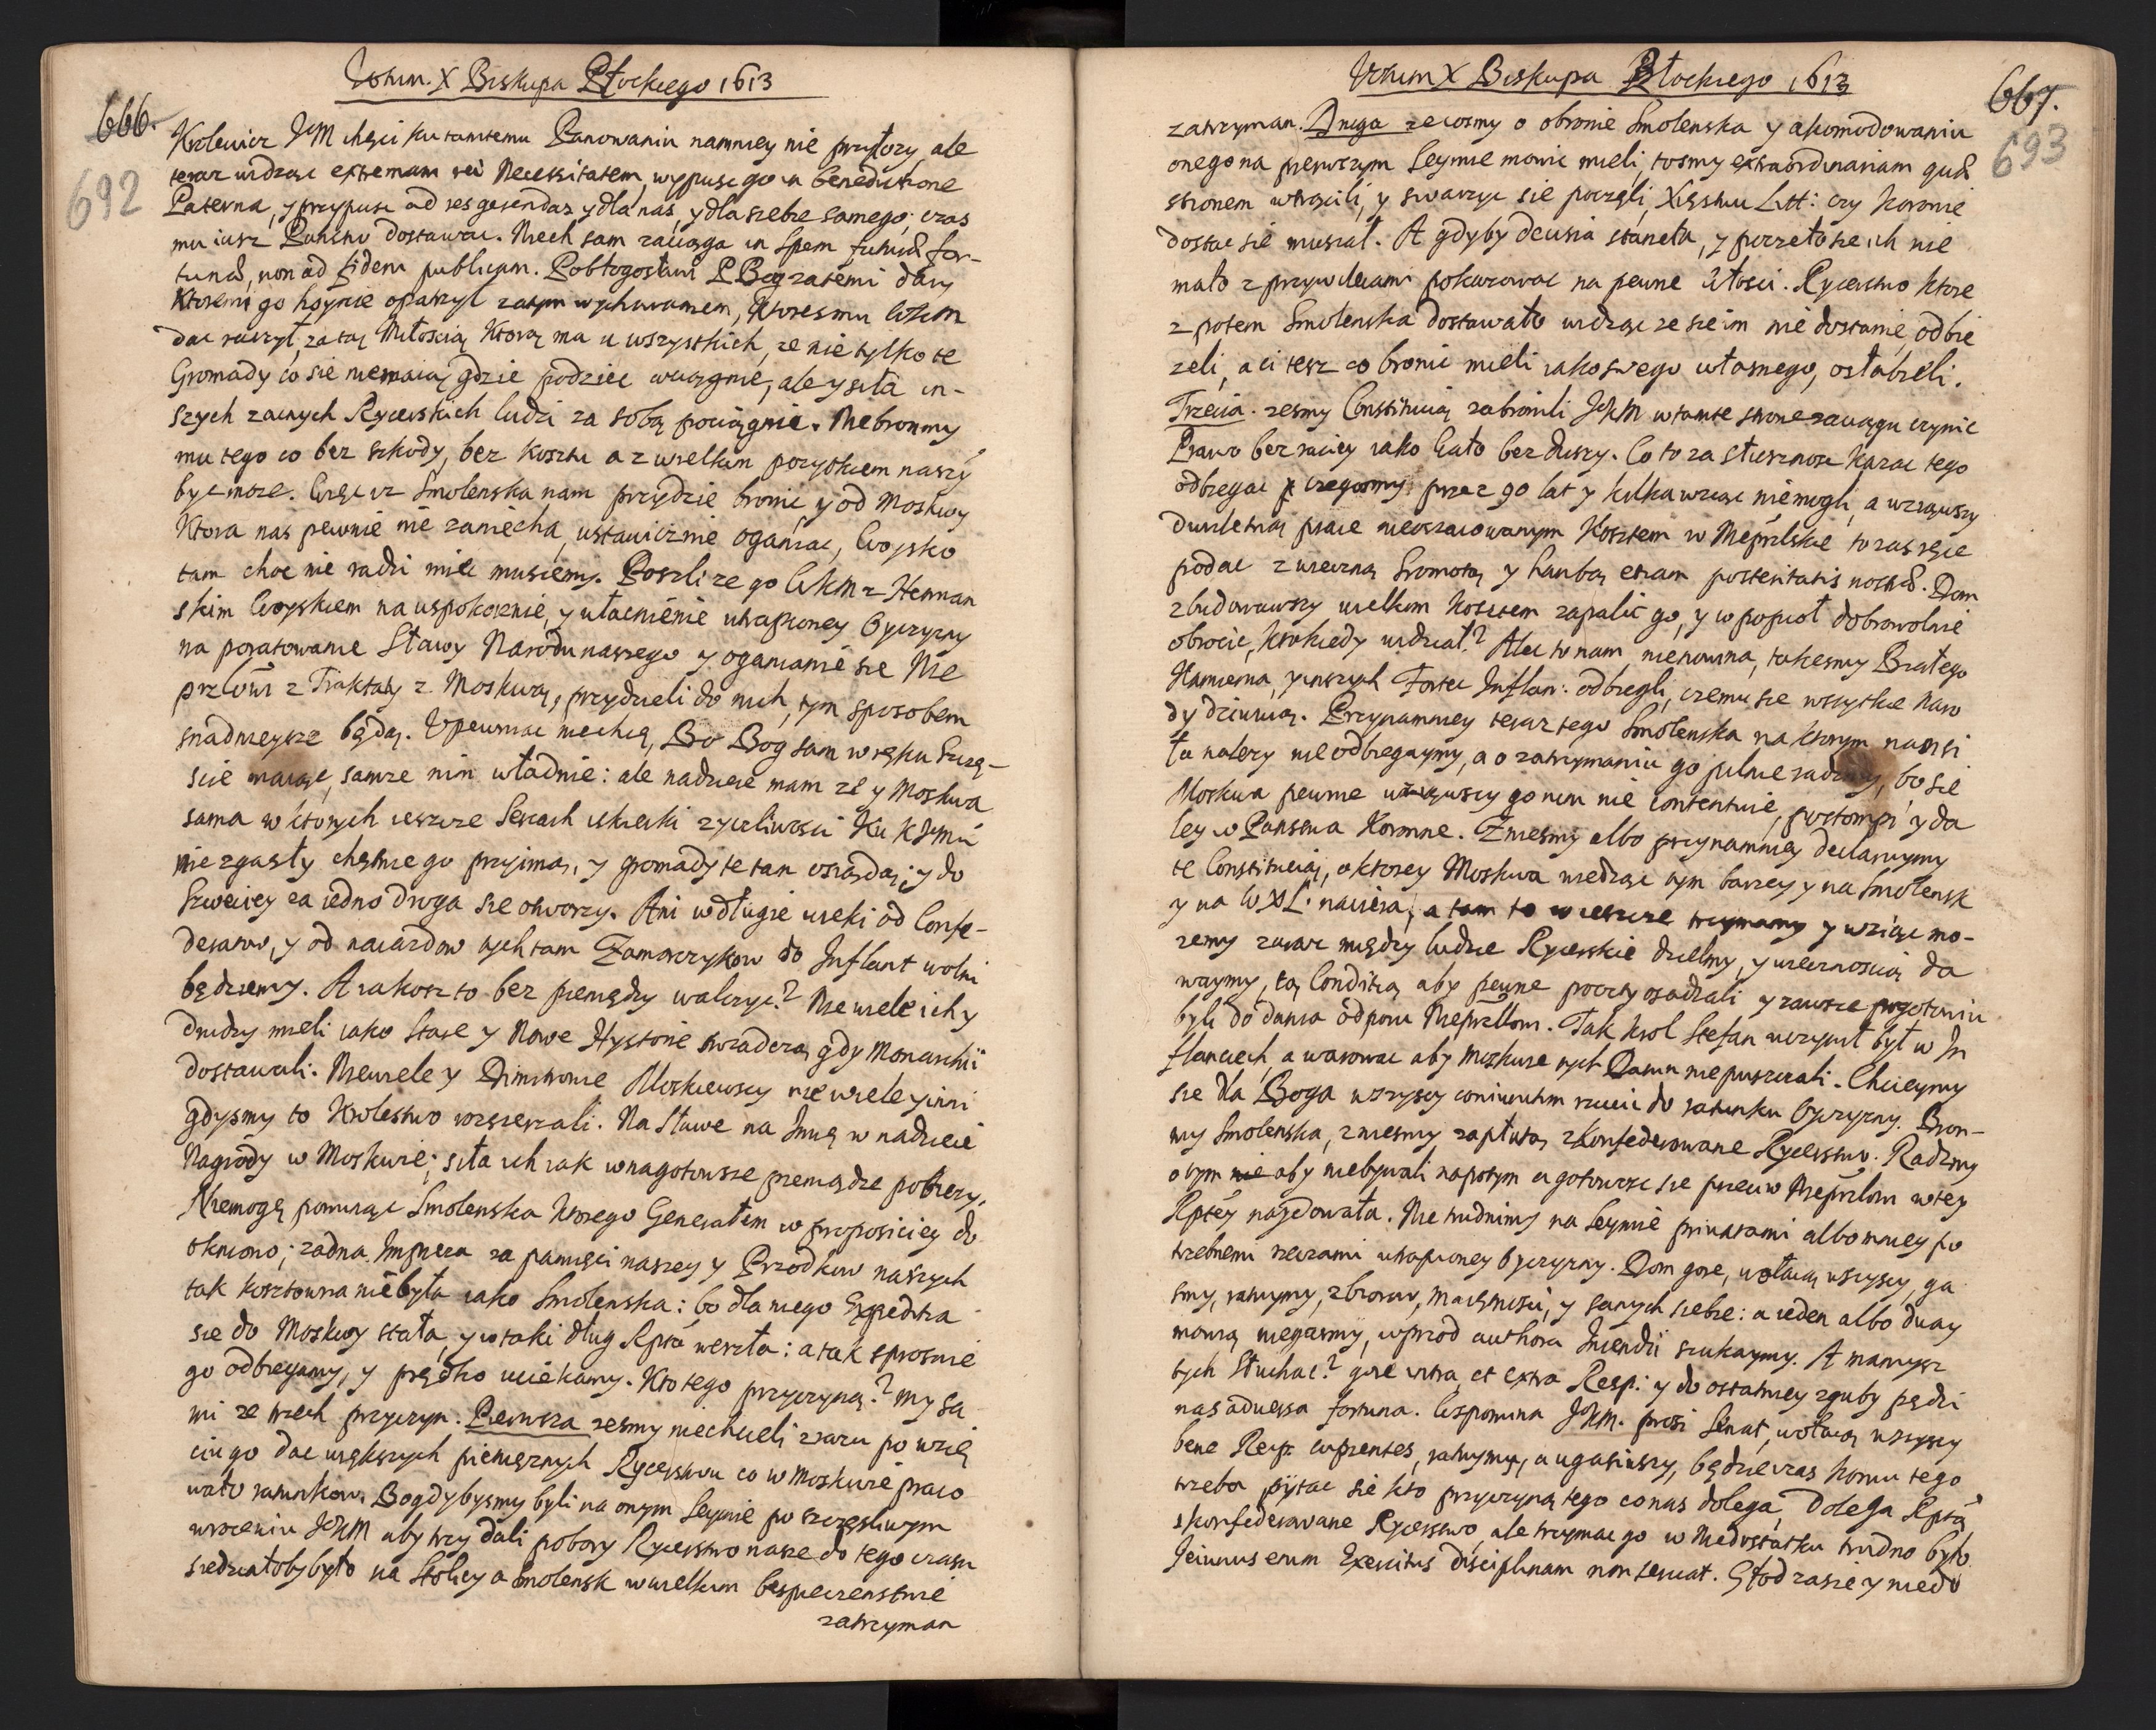 Votum X Biskupa Płockiego 1613
666.
692
Krolewicz JM chęci ku tamtemu Panowaniu namniey nie przyłozy, ale
teraz widząc extremam rei Necessitatem, wypusc go cu benedictione
Paterna, y przypusc ad res gerendas y dla nas, y dla siebie samego; czas
mu iusz Panstw dostawac. Niech sam zaciąga in Spem futuræ for-
tunæ, non ad fidem publicam. Pobłogosławi P Bog zatemi dary
ktoremi go hoynie opatrzył zatym wychowaniem, ktores mu WKM
dac raczył, zatą Miłoscią ktorą ma u wszystkich, ze nie tylko te
Gromady co sie niemaią gdzie podziec wciągnie, ale y siła in-
szych zacnych Rycerskich ludzi za sobą pociągnie. Niebronmy
mu tego co bez szkody, bez kosztu a z wielkim pozytkiem naszy
byc moze. Wszę isz Smolenska nam przydzie bronic y od Moskwy
Ktora nas pewnie nie zaniecha, ustawicznie oganiac, Woysko
tam choc nie radzi miec musiemy. Poszli ze go WKM z Hetman
skim Woyskiem na uspokoienie, y ułacnienie utrapioney Oyczyzny
na poratowanie Sławy Narodu naszego y oganianie sie Nie
przłowi z Traktaty z Moskwą, przydzieli do nich, tym sposobem
snadnieysze będą. Upewniac niechcę, Bo Bog sam w ręku Szczę-
scie maiąc, samze nim władnie: ale nadzieie mam ze y Moskwa
sama w ktorych ieszcze Sercach iskierki zyczliwosci Ku KJMci
nie zgasły chętnie go przyimą, y gromady te tam osiądą; y do
Szweciey ea iedno droga sie otworzy. Ani w długie wieki od Confe-
deratow, y od naiazdow tych tam Zamorczykow do Inflant wolni
będziemy. A iakosz to bez pieniędzy walczyc? Niewiele ich y
drudzy mieli iako Stare y Nowe Hystorie swiadczą gdy Monarchii
dostawali. Niewiele y Dimitrowie Moskiewscy nie wiele y inni
gdysmy to Krolestwo rozszerzali. Na Sławe na Imię w nadzieie
Nagrody w Moskwie; siła ich iak w nagotowsze pieniądze pobiezy.
Niemogę pominąc Smolenska ktorego Generałem w propositiey do
tkniono; zadna Impreza za pamięci naszey y Przodkow naszych
tak kosztowna niebyła iako Smolenska: bo dla niego Expeditia
sie do Moskwy stała, y w taki dług Rpta weszła: a tak sprosnie
go odbiegamy, y prędko uciekamy. Kto tego przyczyną? my sa
mi ze trzech przyczyn. Pierwsza zesmy niechcieli zaraz po wzię
ciu go dac większych pieniężnych Rycerstwu co w Moskwie praco
wało ratunkow. Bogdybysmy byli na onym Seymie po szczęsliwym
wroceniu JKM aby trzy dali pobory Rycerstwo nasze do tego czasu
siedziałoby było na Stolicy a Smolensk w wielkim bespieczenstwie
zatrzyman
Votum X Biskupa Płockiego 1613
667.
693
zatrzyman. Druga ze cosmy o obronie Smolenska y akomodowaniu
onego na pierwszym Seymie mowic mieli, tosmy extraordinariam quæ
stionem wtrącili, y swarzyc sie poczęli, Xięstwu Litt: czy Koronie
dostac sie musiał. A gdyby decisia staneła, y poczetosie ich nie
mało z przywileiami pokazowac na pewne włosci. Rycerstwo ktore
z potem Smolenska dostawało widząc ze sie im nie dostanie, odbie
zeli, a ci tesz co bronic mieli iako swego własnego, osłabieli.
Trzecia. zesmy Constitucią zabronili JKM w tamte strone zaciągu czynic
Prawo bez raciey iako Ciało bez duszy. Co to za słusznosc kazac tego
odbiegac czegosmy przez 90 lat y kilka wziąc niemogli, a wziąwszy
dwuletnią prace nieoszacowanym Kosztem w Nieprzlskie to zas ręce
podac z wieczną Sromotą y hanbą etiam posteritatis nostræ. Dom
zbudowawszy wielkim kosztem zapalic go, y w popioł dobrowolnie
obrocic, kto kiedy widział? Alec to nam nienowina, takesmy Białego
Kamienia, y inszych Fortec Inflan: odbiegli, czemu sie wszytkie Naro
dy dziwuią. Przynamniey teraz tego Smolenska na ktorym nam si
ła nalezy nieodbiegaymy, a o zatrzymaniu go pilnie radzmy, bo sie
Moskwa pewnie wziąwszy go nim nie contentuie, postompi y da
ley w Panstwa Koronne. Zniesmy albo przynamniey declaruymy
te Constitucią, o ktorey Moskwa wiedząc tym barziey y na Smolensk
y na WXL. naciera, a tam to co ieszcze trzymamy y wziąc mo-
zemy zaraz między ludzie Rycerskie dzielmy, y wiecznoscią da
waymy, tą Conditią aby pewne poczty osadzali y zawsze pogotowiu
byli do dania odporu Nieprzllom. Tak krol Stefan uczynił był w In
flanciech, a warowac aby Moskwie tych Dawn niepuszczali. Chcieymy
sie dla Boga wszyscy coniunctim rzucic do ratunku Oyczyzny. Bron-
my Smolenska, zniesmy zapłatą zkonfederowane Rycerstwo. Radzmy
o tym aby niebywali napotym a gotowosc sie przeciw Nieprzlom w tey
Rptey naydowała. Nie trudnimy na Seymie priuatami albo mniey po
trzebnemi rzeczami utrapioney Oyczyzny. Dom gore, wołaią wszyscy, ga
smy, ratuymy, zbiorow, maiętnosci, y samych siebie: a ieden albo dway
mowią niegasmy, wprzod authora Incendii szukaymy. A mamysz
tych słuchac? gore intra et extra Resp: y do ostatniey zguby pędzi
nas aduersa fortuna. Wspomina JKM. prosi Senat, wołaią wszyscy
bene Reip. cupientes, ratuymy, a ugasiwszy, będzie czas komu tego
trzeba pytac sie kto przyczyną tego co nas dolega, Dolega Rptą
skonfederowane Rycerstwo, ale trzymac go w Niedostatku trudno było.
Ieiunus enim Exercitus disciplinam non seruat. Głod zasie y niedo